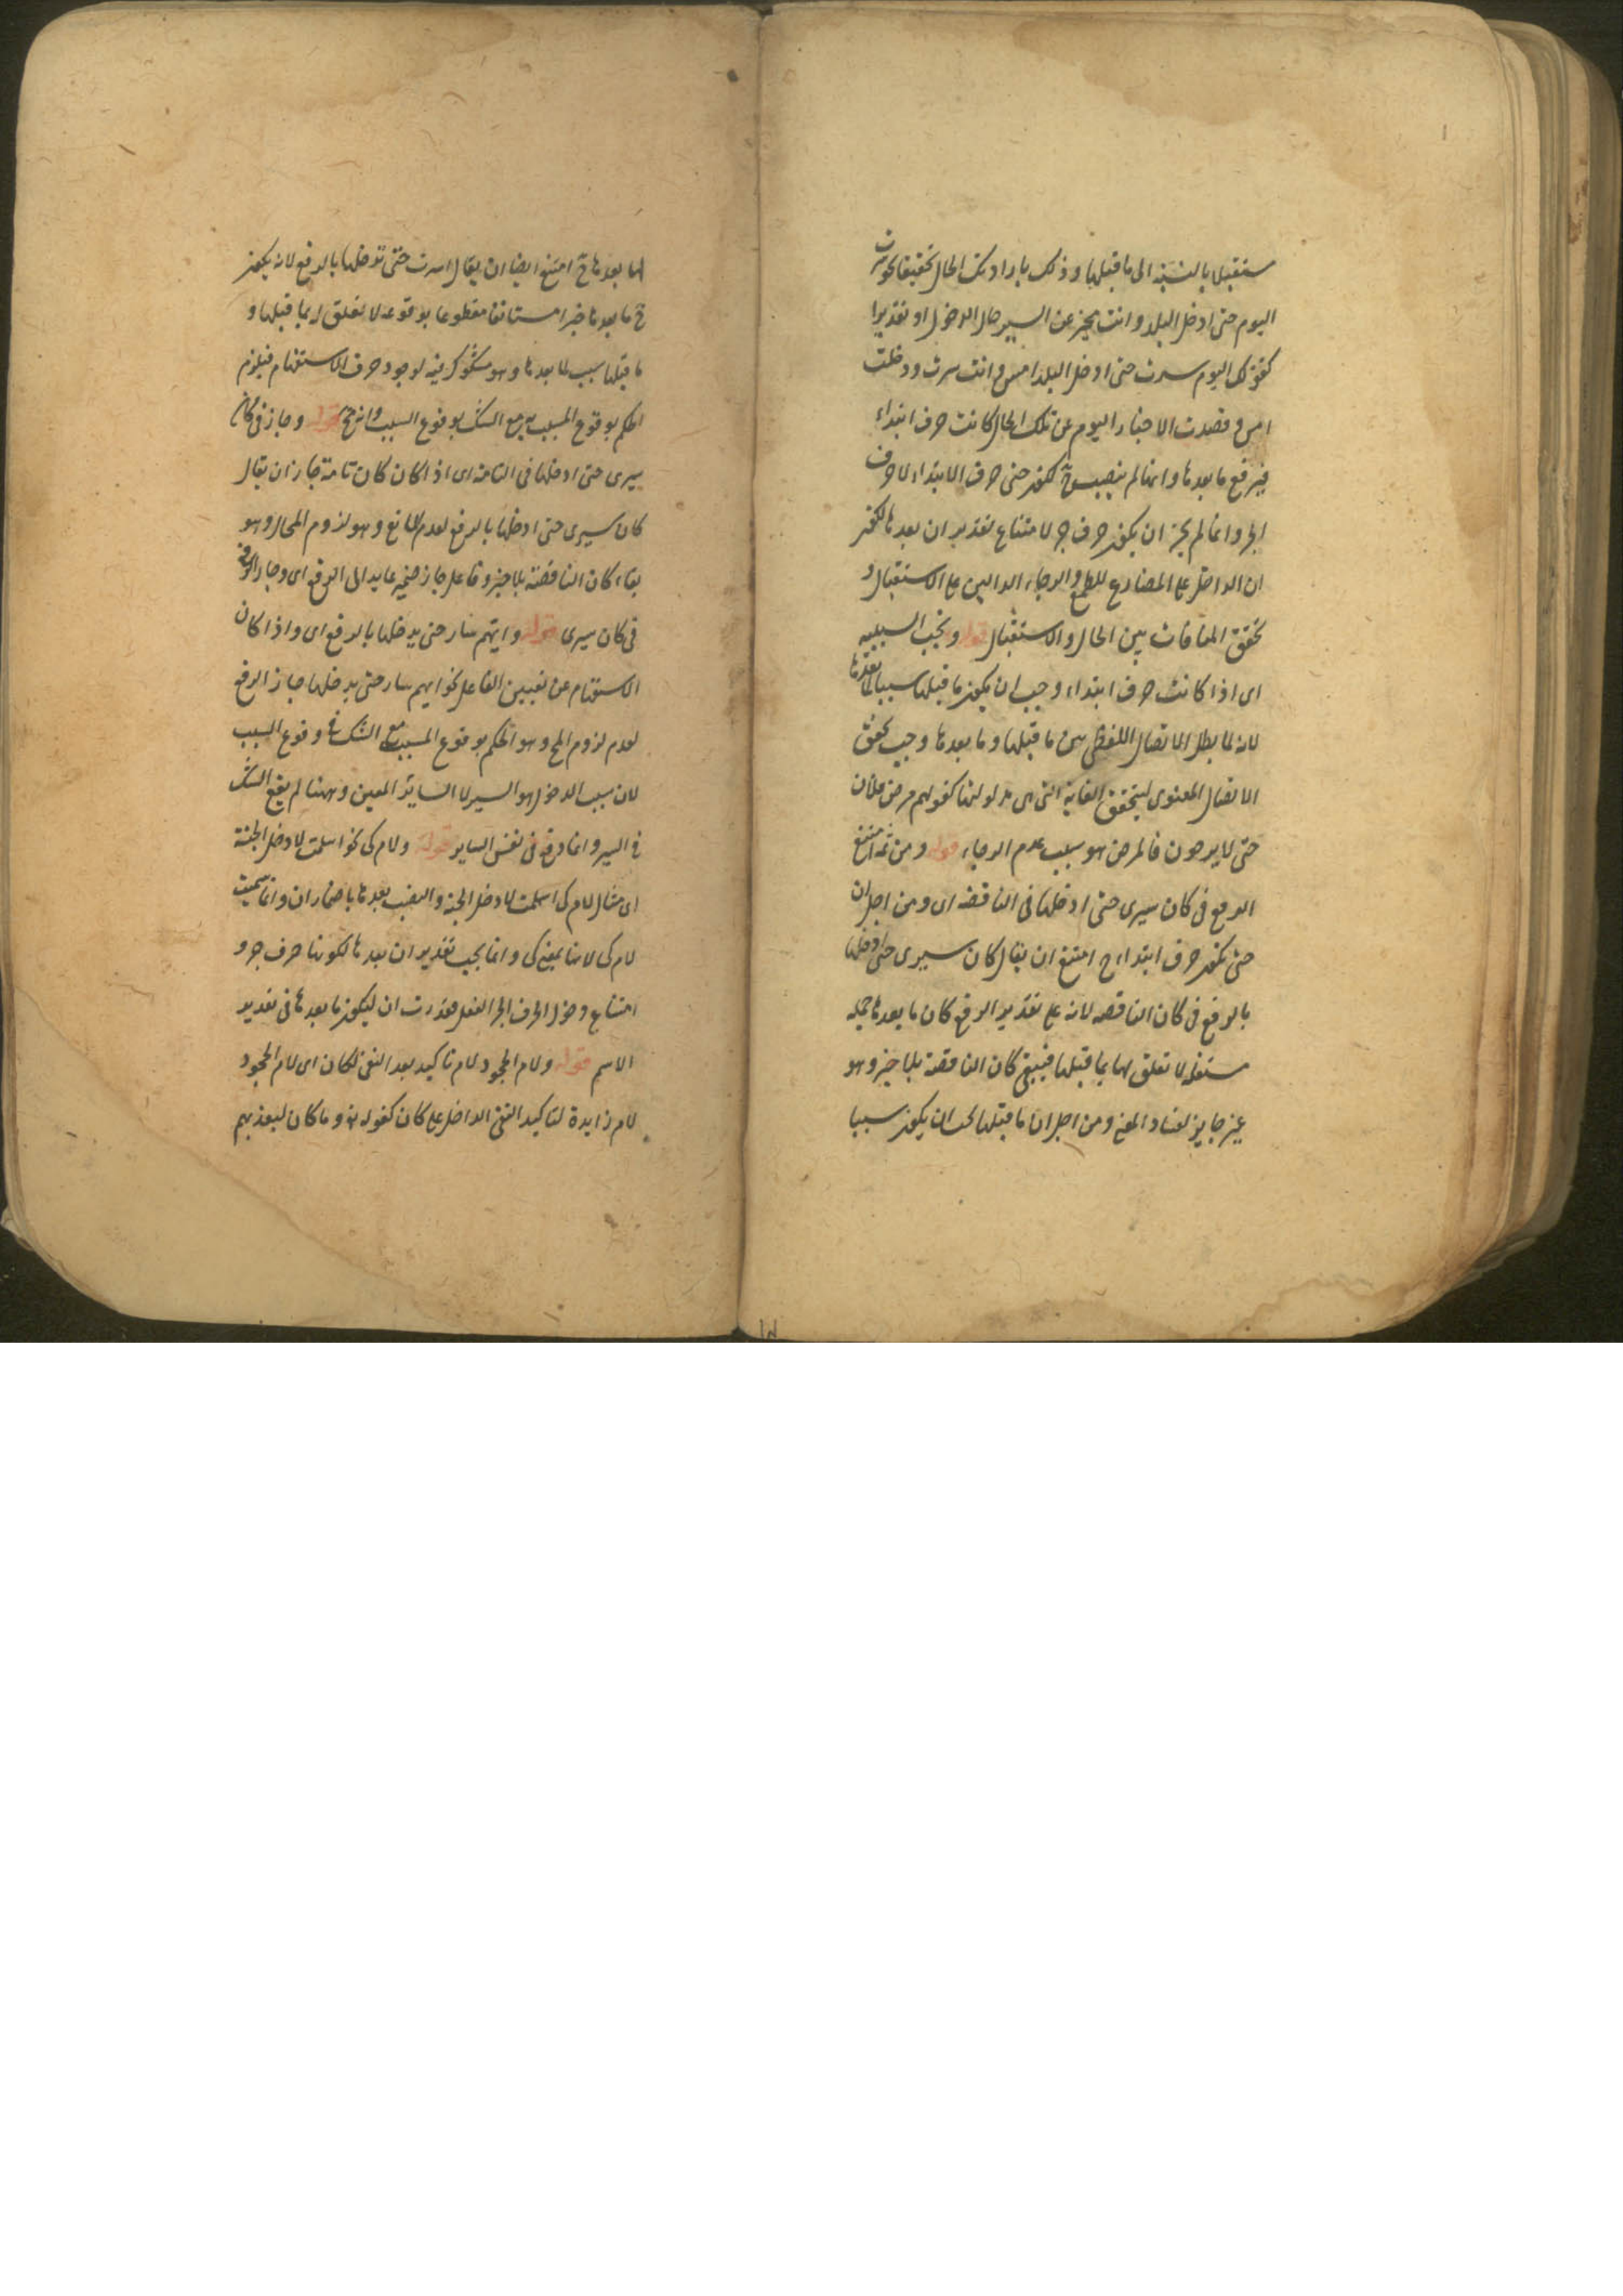 مستقبلا بالنسبة الى ما قبلها وذلك بارادتك الحال تحقيقا نحو سرت
اليوم حتى ادخل البلد وانت تخبر عن السير حال الدخول او تقديرا
كقولك اليوم سرت حتى ادخل البلد امس وانت سرت ودخلت
امس وقصدت الاخبار اليوم عن تلك الحال كانت حرف ابتداء
فيرفع ما بعدها وانما لم ينصب ح لكون حتى حرف الابتداء لا حرف
الجر وانما لم يجز ان يكون حرف جر لامتناع تقدير ان بعدها لكون
ان الداخل على المضارع للطمع والرجاء الدالين على الاستقبال و
تحقق المنافات بين الحال والاستقبال قوله وتجب السببيه
اى اذا كانت حرف ابتداء وجب ان يكون ما قبلها سببا لما بعدها
لانه لما بطل الاتصال اللفظى بين ما قبلها وما بعدها وجب تحقق
الاتصال المعنوى ليتحقق الغاية التى هى مدلولها كقولهم مرض فلان
حتى لا يرجون فالمرض هو سبب عدم الرجاء قوله ومن ثمه امتنع
الرفع فى كان سيرى حتى ادخلها فى الناقصه اى ومن اجل ان
حتى تكون حرف ابتداء ح امتنع ان يقال كان سيرى حتى ادخلها
بالرفع فى كان الناقصه لانه على تقدير الرفع كان ما بعدها جمله
مستقله لا تعلق لها بما قبلها فيبقى كان الناقصة بلا خبر وهو
غير جايز لفساد المعنى ومن اجل ان ما قبلها يجب ان يكون سببا
لما بعدها ح امتنع ايضا ان يقال اسرت حتى تدخلها بالرفع لانه يكون
ح ما بعدها خبرا مستانفا مقطوعا بوقوعه لا تعلق له بما قبلها و
ما قبلها سبب لما بعدها وهو مشكوك فيه لوجود حرف الاستفهام فيلزم
الحكم بوقوع المسبب مع الشك بوقوع السبب وانه مح قوله وجاز فى كان
سيرى حتى ادخلها فى التامة اى اذا كان كان تامة جاز ان يقال
كان سيرى حتى ادخلها بالرفع لعدم المانع وهو لزوم المحال وهو
بقاء كان الناقصة بلا خبر وفاعل جاز ضمير عايد الى الرفع اى وجاز الرفع
فى كان سيرى قوله وايهم سار حتى يدخلها بالرفع اى واذا كان
الاستفهام عن تعيين الفاعل نحو ايهم سار حتى يدخلها جاز الرفع
لعدم لزوم المح وهو الحكم بوقوع المسبب مع الشك فى وقوع السبب
لان سبب الدخول هو السير لا الساير المعين وههنا لم يقع الشك
فى السير وانما وقع فى نفس الساير قوله ولام كى نحو اسلمت لادخل الجنة
اى مثال لام كى اسلمت لادخل الجنة والنصب بعدها باضمار ان وانما سميت
لام كى لانها بمعنى كى وانما يجب تقدير ان بعدها لكونها حرف جر و
امتناع دخول حرف الجر الفعل فقدرت ان ليكون ما بعدها فى تقدير
الاسم قوله ولام الجحود لام تاكيد بعد النفى لكان اى لام الجحود
لام زايدة لتاكيد النفى الداخل على كان كقوله تع وما كان ليعذبهم